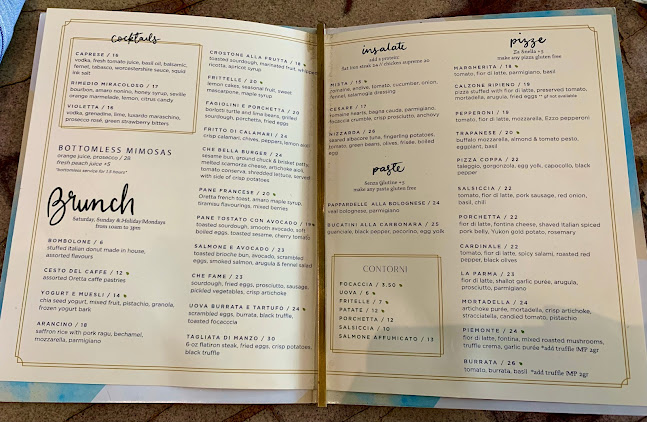 cocktails
CAPRESE / 16
vodka, fresh tomato juice, basil oil, balsamic,
fernet, tabasco, worcestershire sauce, squid
ink salt
RIMEDIO MIRACOLOSO / 17
bourbon, amaro nonino, honey syrup, seville
orange marmelade, lemon, citrus candy
VIOLETTA / 16
vodka, grenadine, lime, luxardo maraschino,
prosecco rosé, green strawberry bitters
BOTTOMLESS MIMOSAS
orange juice, prosecco / 25
fresh peach juice +5
*bottomless service for 1.5 hours*
Brunch
Saturday, Sunday & Holiday Mondays
from 10am to 3pm
BOMBOLONE / 6
stuffed italian donut made in house,
assorted flavours
CESTO DEL CAFFE / 12
assorted Oretta pastries
YOGURT E MUESLI / 14
chia seed yogurt, mixed fruit, pistachio, granola,
frozen yogurt bark
ARANCINO / 18
saffron rice with pork ragu, bechamel,
mozzarella, parmigiano
CROSTONE ALLA FRUTTA / 18
toasted sourdough, marinated fruit, whipped
ricotta, apricot syrup
FRITTELLE / 20
lemon cakes, seasonal fruit, sweet
mascarpone, maple syrup
FAGIOLINI E PORCHETTA / 20
borlotti, fava and lima beans, grilled
sourdough, porchetta, fried eggs
FRITTO DI CALAMARI / 24
crisp calamari, chives, peppers, lemon aioli
CHE BELLA BURGER / 24
sesame bun, ground chuck & brisket patty,
melted scamorza cheese, artichoke aioli,
tomato conserva, shredded lettuce, served
with side of crisp potatoes
PANE FRANCESE / 20
Oretta french toast, amaro maple syrup,
tiramisu flavourings, mixed berries
PANE TOSTATO CON AVOCADO / 19
toasted sourdough, smooth avocado, soft
boiled eggs, toasted sesame, cherry tomato
SALMONE E AVOCADO / 23
toasted brioche bun, avocado, scrambled
eggs, smoked salmon, arugula & fennel salad
CHE FAME / 23
sourdough, fried eggs, prosciutto, sausage,
pickled vegetables, crisp artichoke
UOVA BURRATA E TARTUFO / 24
scrambled eggs, burrata, black truffle,
toasted focaccia
TAGLIATA DI MANZO / 30
6 oz flatiron steak, fried eggs, crisp potatoes,
black truffle
insalati
add a protein:
flat iron steak 24 // chicken supreme 20
MISTA / 15
romaine, endive, tomato, cucumber, onion,
fennel, salamoriglio dressing
CESARE / 17
romaine hearts, bagna cauda, parmigiano,
focaccia crumble, crisp prosciutto, anchovy
NIZZARDA / 26
seared albacore tuna, fingerling potatoes,
tomato, green beans, olives, frisée, boiled
egg
paste
Senza Glutine +3
make any paste gluten free
PAPPARDELLE ALLA BOLOGNESE / 24
veal bolognese, parmigiano
BUCATINI ALLA CARBONARA / 25
guanciale, black pepper, pecorino, egg yolk
CONTORNI
FOCACCIA / 3.50
UOVA / 6
FRITELLE / 7
PATATE / 12
PORCHETTA / 12
SALSICCIA / 10
SALMONE AFFUMICATO / 13
pizze
make any pizza gluten free
MARGHERITA / 18
tomato, fior di latte, parmigiano, basil
CALZONE RIPIENO / 19
pizza stuffed with fior di latte, preserved tomato,
mortadella, arugula, fried eggs ** gf not available
PEPPERONI / 19
tomato, fior di latte, mozzarella, Ezzo pepperoni
TRAPANESE / 20
buffalo mozzarella, almond & tomato pesto,
eggplant, basil
PIZZA COPPA / 22
taleggio, gorgonzola, egg yolk, capocollo, black
pepper
SALSICCIA / 22
tomato, fior di latte, pork sausage, red onion,
basil, chili
PORCHETTA / 22
fior di latte, fontina cheese, shaved Italian spiced
pork belly, Yukon gold potato, rosemary
CARDINALE / 22
tomato, fior di latte, spicy salami, roasted red
pepper, black olives
LA PARMA / 23
fior di latte, shallot garlic purée, arugula,
prosciutto, parmigiano
MORTADELLA / 24
artichoke purée, mortadella, crisp artichoke,
stracciatella, candied tomato, pistachio
PIEMONTE / 24
fior di latte, fontina, mixed roasted mushrooms,
truffle crema, garlic purée *add truffle |MP 2gr
BURRATA / 26
tomato, burrata, basil *add truffle |MP 2gr